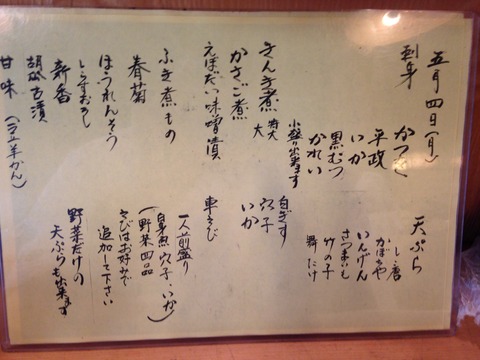 五月四日(月)
刺身
かつお
平政
いか
黒むつ
かれい
小盛り出来ます
きんき煮 特大 大
かさご煮
えぼだい味噌漬
ふき煮もの
春菊
ほうれんそう
しらすおろし
新香
胡瓜古漬
甘味
天ぷら
しし唐
かぼちゃ
いんげん
さつまいも
竹の子
舞たけ
白ぎす
穴子
いか
車えび
一人前盛り
(白身魚 穴子・いか
野菜四品)
えびはお好みで
追加して下さい
野菜だけの
天ぷらも出来ます